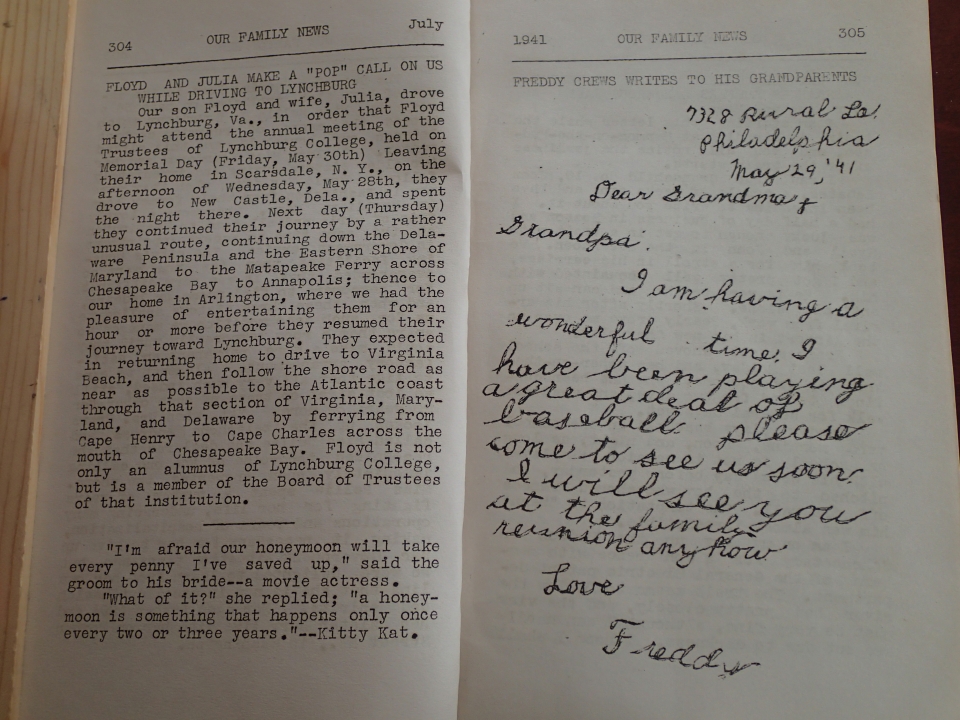 304 OUR FAMILY NEWS July
FLOYD AND JULIA MAKE A "POP" CALL ON US
WHILE DRIVING TO LYNCHBURG
Our son Floyd and wife, Julia, drove
to Lynchburg, Va., in order that Floyd
might attend the annual meeting of the
Trustees of Lynchburg College, held on
Memorial Day (Friday, May 30th) Leaving
their home in Scarsdale, N. Y., on the
afternoon of Wednesday, May 28th, they
drove to New Castle, Dela., and spent
the night there. Next day (Thursday)
they continued their journey by a rather
unusual route, continuing down the Dela-
ware Peninsula and the Eastern Shore of
Maryland to the Matapeake Ferry across
Chesapeake Bay to Annapolis; thence to
our home in Arlington, where we had the
pleasure of entertaining them for an
hour or more before they resumed their
journey toward Lynchburg. They expected
in returning home to drive to Virginia
Beach, and then follow the shore road as
near as possible to the Atlantic coast
through that section of Virginia, Mary-
land, and Delaware by ferrying from
Cape Henry to Cape Charles across the
mouth of Chesapeake Bay. Floyd is not
only an alumnus of Lynchburg College,
but is a member of the Board of Trustees
of that institution.
"I'm afraid our honeymoon will take
every penny I've saved up," said the
groom to his bride--a movie actress.
"What of it?" she replied; "a honey-
moon is something that happens only once
every two or three years."--Kitty Kat.
1941 OUR FAMILY NEWS 305
FREDDY CREWS WRITES TO HIS GRANDPARENTS
7328 Rural La.
Philadelphia
May 29, '41
Dear Grandma &
Grandpa.
I am having a
wonderful time. I
have been playing
a great deal of
baseball please
come to see us soon.
I will see you
at the family
reunion anyhow
Love
Freddy